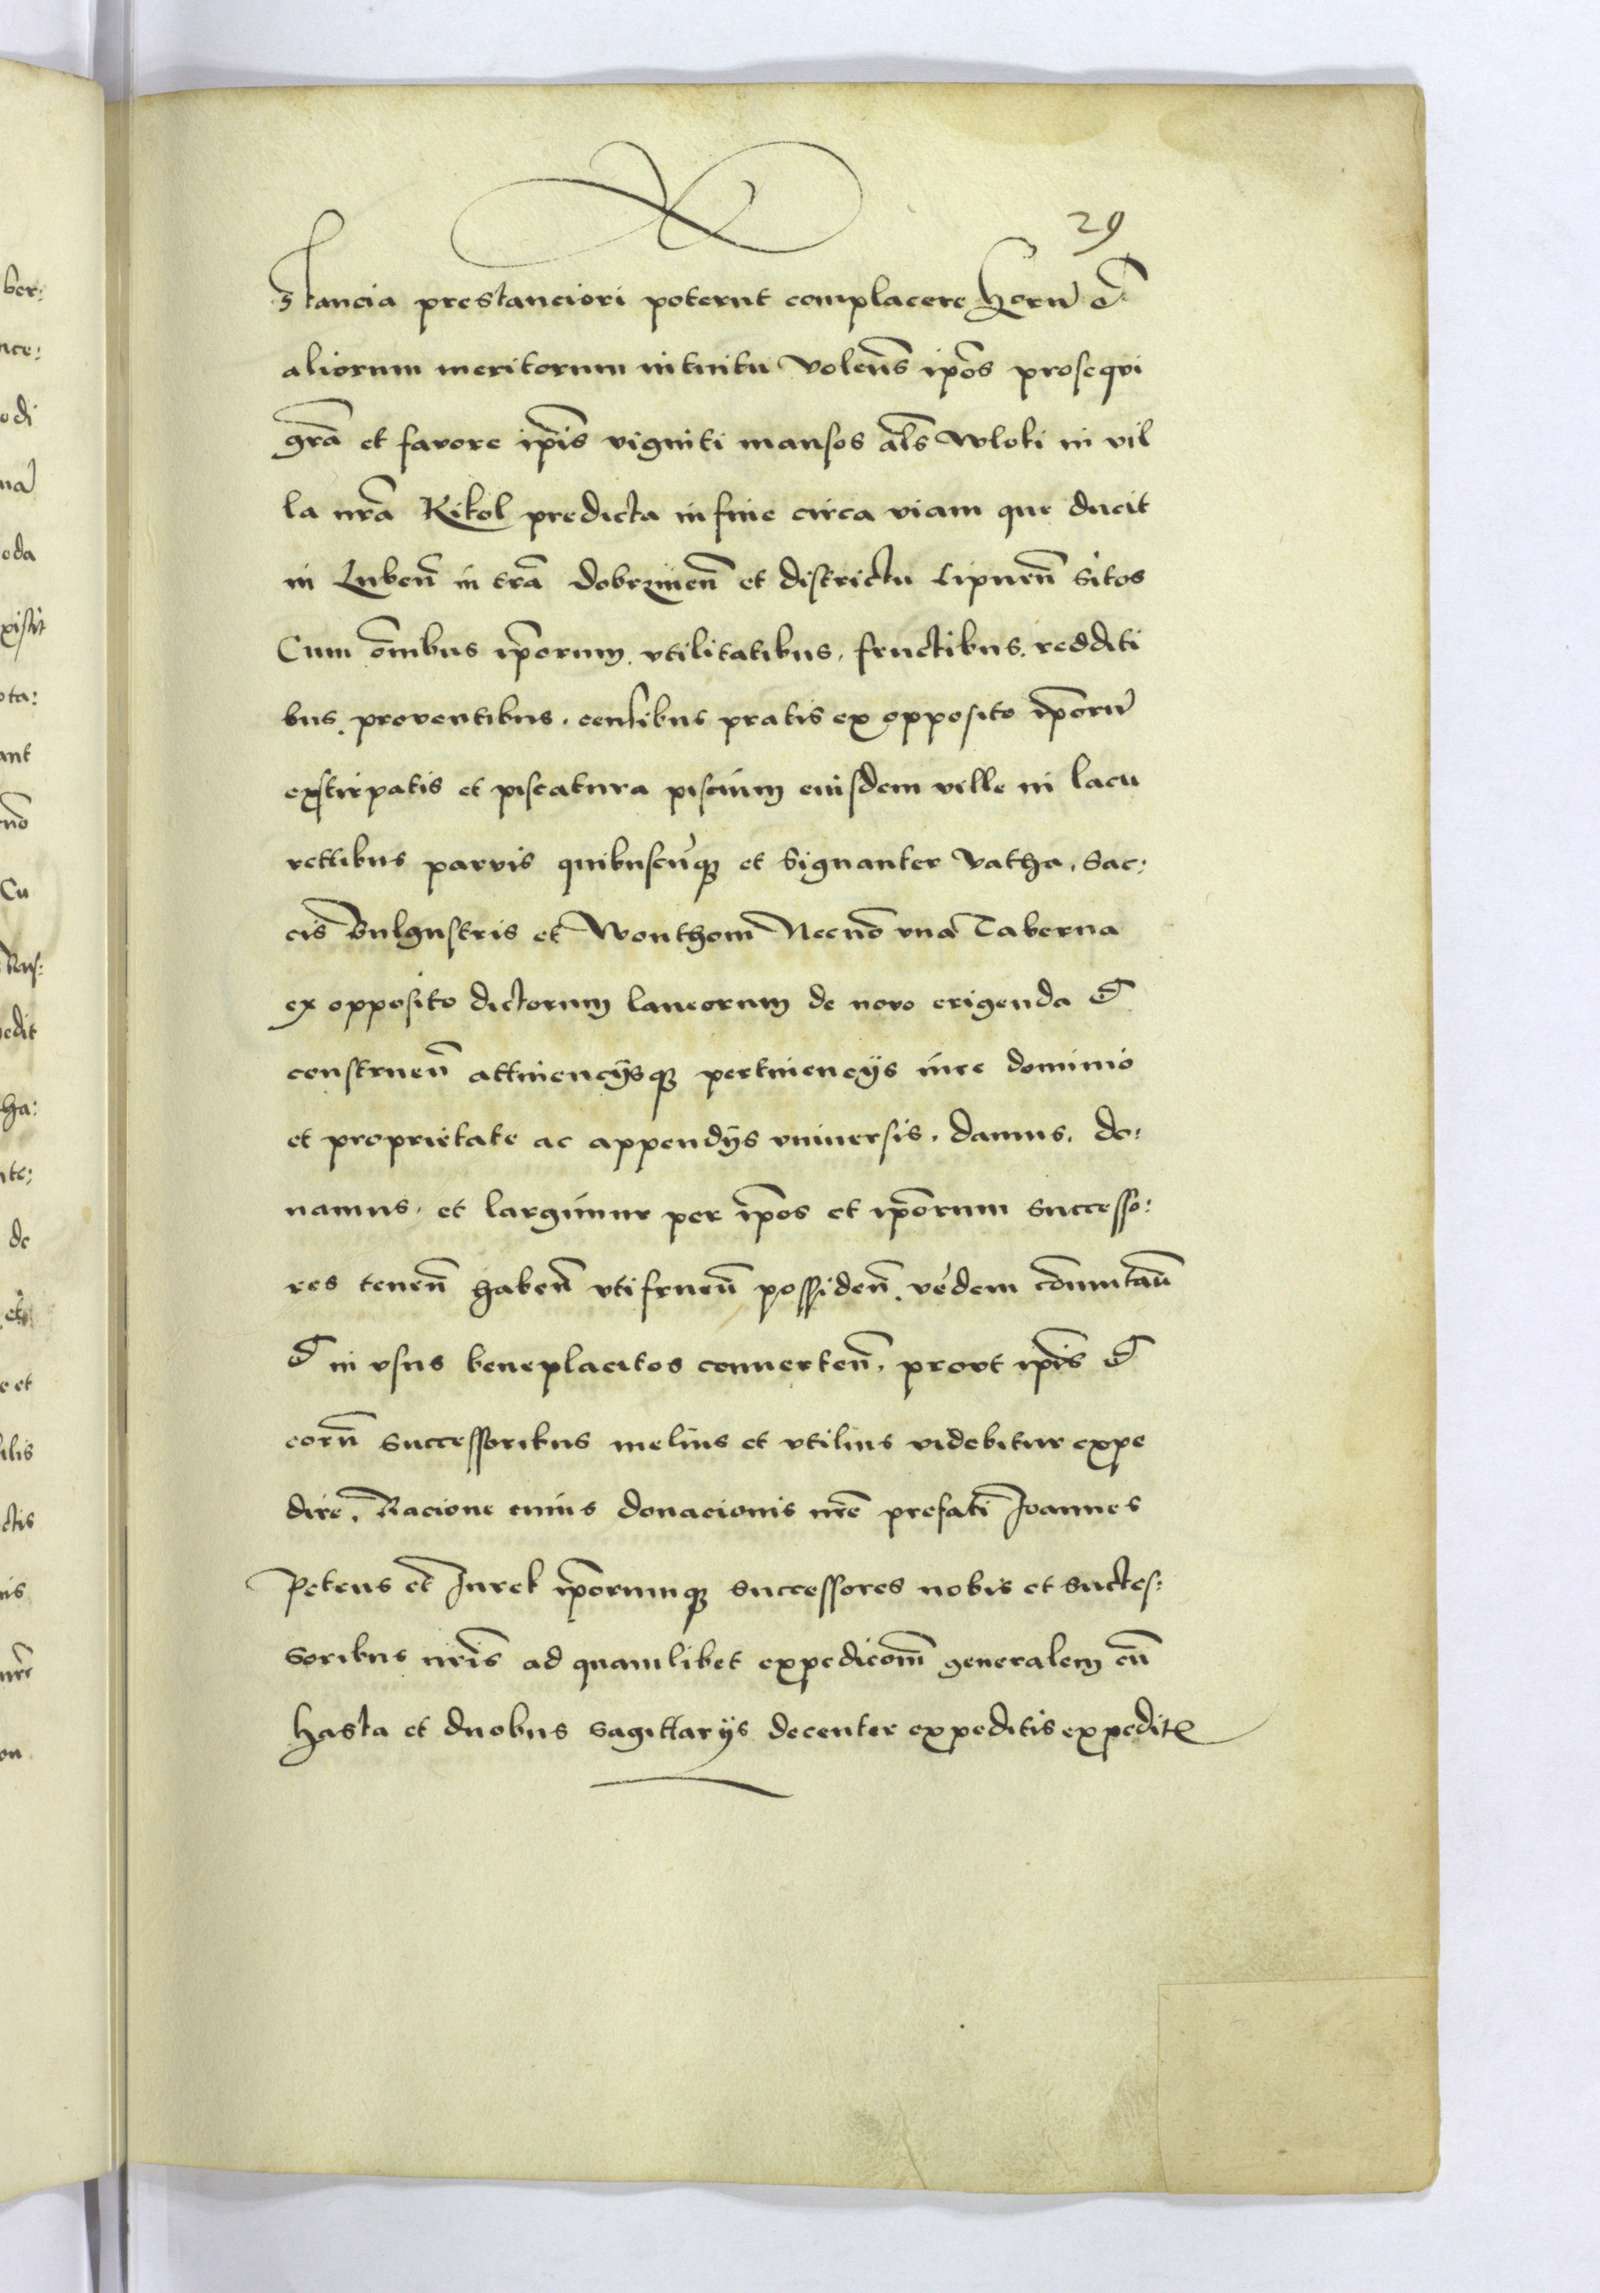 29
stancia prestanciori poterut complacere horū et
aliorum meritorum intuitu volen̄s ip̄os prosequi
grā et favore ip̄is viginti mansos al̄s wloki in vil
la nrā Kikol predicta in fine circa viam que ducit
in Luben̄ in trā dobrzinen̄ et districtu Lipnen̄ sitos
Cum om̄ibus ip̄orum. vtilitatibus, fructibus, redditi
bus, proventibus, censibus pratis ex opposito ip̄orū
exstirpatis et piscatura piscium eiusdem ville in lacu
rettibus parvis quibuscūq; et signanter vatha, sac:
cis bulgustris et wonthom̄ Necnō vna Taberna
ex opposito dictorum laneorum de novo erigenda et
construen̄ attinencijsq; pertinencijs iure dominio
et proprietate ac appendijs vniuersis, damus, do:
namus, et largimur per ip̄os et ip̄orum successo:
res tenen̄ haben̄ vtifruen̄ possiden̄, vēdem com̄utan̄
et in vsus beneplacitos conuerten̄, prout ip̄is et
eorū successoribus melius et vtilius videbitur expe
dire, Racione cuius donacionis nrē prefati Joannes
Petrus et Jurek ip̄orumq; successores nobis et succes:
soribus nrīs ad quamlibet expedicōm generalem cū
hasta et duobus sagittarijs decenter expeditis expedit
ber:
nce:
odi
oda
xistit
ota:
ant
Cu
edit
ha:
nte:
de
e et
ilis
ctis
nis
nrē
on